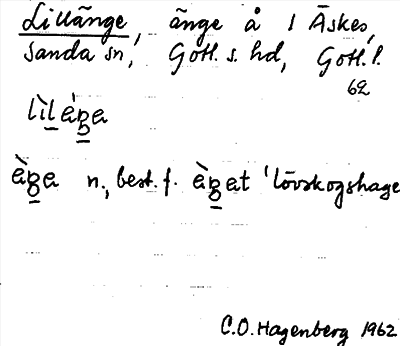 Lillänge, änge å 1 Äskes,
Sanda sn, Gotl. s. hd, Gotl. l.
62
lìlága
àga n., best. f. àgat 'lövskogshage
C.O. Hagenberg 1962